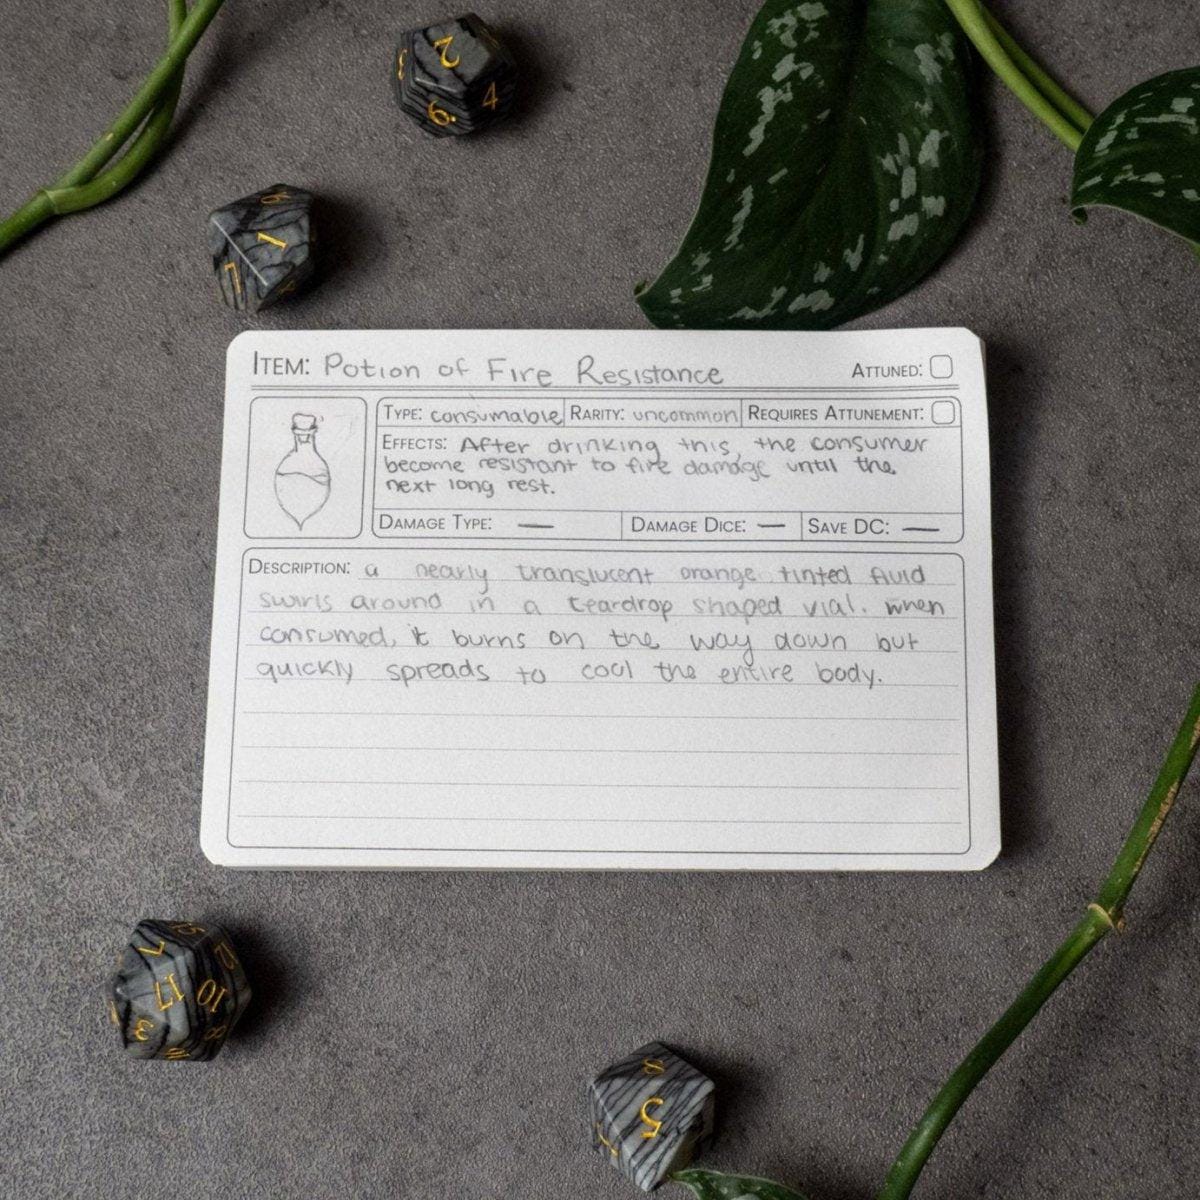 2
6.
4
1
ITEM: Potion of Fire Resistance ATTUNED:
TYPE: consumable RARITY: uncommon REQUIRES ATTUNEMENT:
EFFECTS: After drinking this, the consumer
become resistant to fire damage until the
next long rest.
DAMAGE TYPE: — DAMAGE DICE: — SAVE DC: —
DESCRIPTION: a nearly translucent orange tinted fluid
swirls around in a teardrop shaped vial. When
consumed, it burns on the way down but
quickly spreads to cool the entire body.
15
7
12
17
10
3
8
5